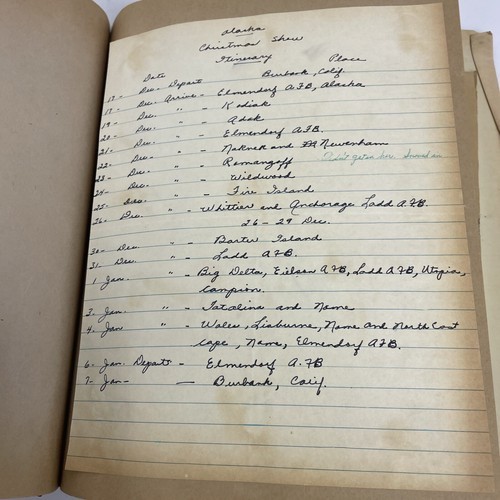 Alaska
Christmas Show
Itinerary
Date Place
17- Dec- Depart Burbank, Calif.
17- Dec- Arrive- Elmendorf AFB, Alaska
19- Dec. " - Kodiak
20- Dec. " - Adak
21- Dec. " - Elmendorf AFB.
22- Dec. " - Naknek and Newenham Didn't get in here Snowed in
23- Dec. " - Romanzoff
24- Dec. " - Wildwood
25- Dec. " - Fire Island
26- Dec. " - Whittier and Anchorage Ladd AFB.
26-29 Dec.
30- Dec. " - Barter Island
31- Dec. " - Ladd AFB.
1 Jan. " - Big Delta, Eielson AFB, Ladd AFB, Utopia,
Campion.
3. Jan. " - Tatalina and Nome
4. Jan " - Wales, Lisburne, Nome and North East
Cape, Nome, Elmendorf AFB.
6- Jan. Depart - Elmendorf A.FB
7- Jan- — Burbank, Calif.